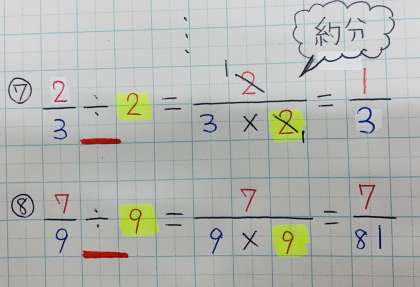 約分
⑦ 2/3 ÷ 2 = 1 2/3 × 2 1 = 1/3
⑧ 7/9 ÷ 9 = 7/9 × 9 = 7/81